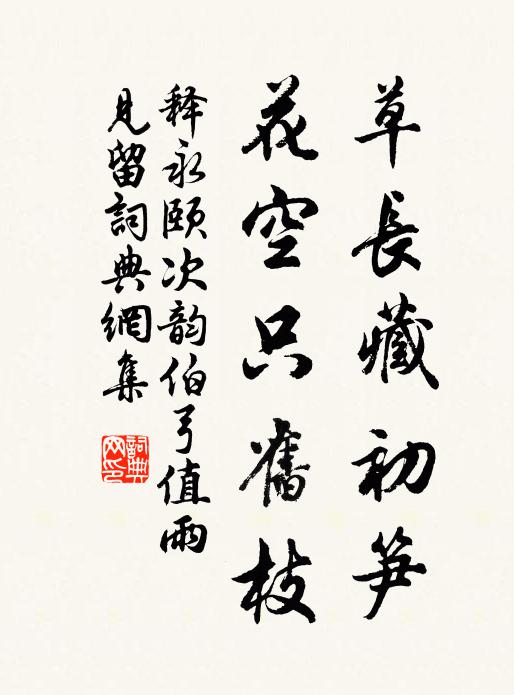 草長藏初笋
花空只舊枝
释永颐次韵伯弓值雨
見留詞典網集
詞典
网印